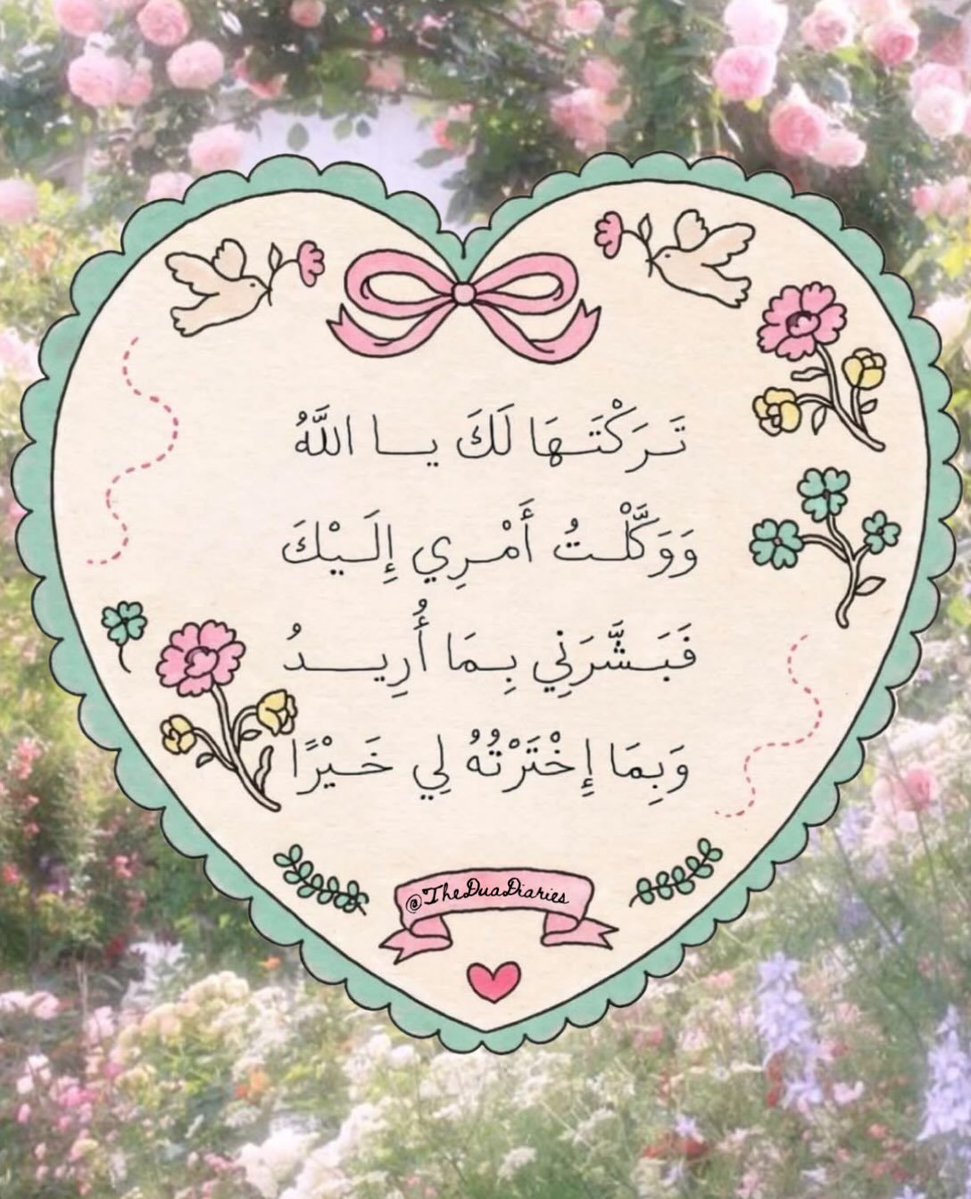 تَـرَكْتَـهَا لَكَ يـا اللَّهُ
وَوَكَّلْـتُ أَمْـرِي إِلَـيْكَ
فَبَـشَّرَنِي بِـمَا أُرِيـدُ
وَبِمَا إِخْتَرْتُهُ لِي خَـيْرًا
@TheDuaDiaries